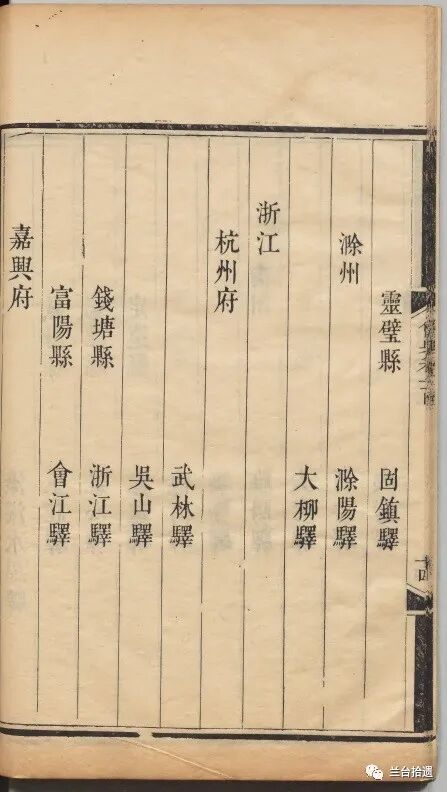 靈璧縣 固鎮驛
滁州 滁陽驛
大柳驛
浙江
杭州府
武林驛
吳山驛
錢塘縣 浙江驛
富陽縣 會江驛
嘉興府
兰台拾遗